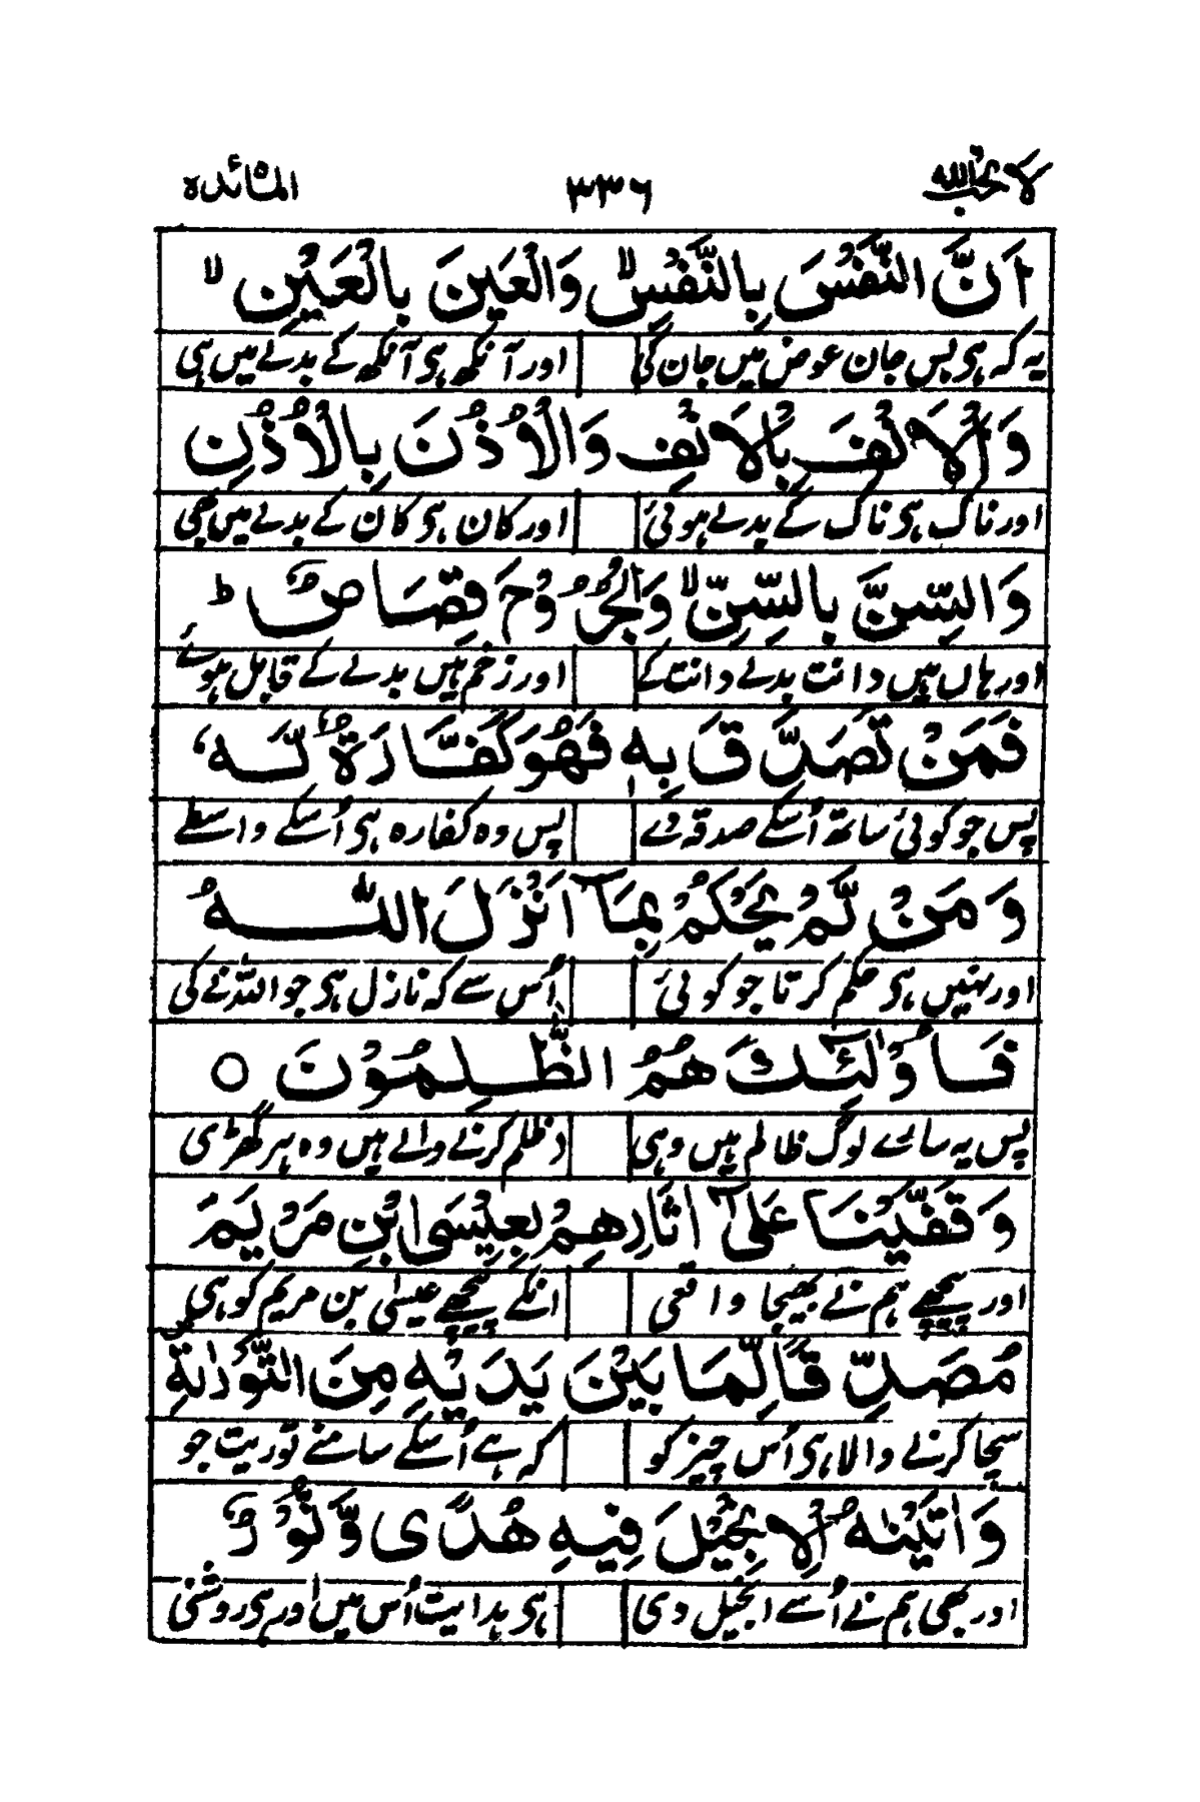 لا یحب اللہ ۳۳۶ المائدہ
اَنَّ النَّفْسَ بِالنَّفْسِ ۙ وَالْعَيْنَ بِالْعَيْنِ ۙ
یہ کہ ہی بس جان عوض میں جان کی اور آنکھ ہی آنکھ کے بدلے میں ہی
وَالْاَنْفَ بِالْاَنْفِ وَالْاُذُنَ بِالْاُذُنِ
اور ناک ہی ناک کے بدلے ہوئی اور کان ہی کان کے بدلے میں بھی
وَالسِّنَّ بِالسِّنِّ ۙ وَالْجُرُوْحَ قِصَاصٌ ؕ
اور ہاں ہیں دانت بدلے دانت کے اور زخم ہیں بدلے کے قابل ہوئے
فَمَنْ تَصَدَّقَ بِهٖ فَهُوَ كَفَّارَةٌ لَّهٗ
پس جو کوئی ساتھ اُسکے صدقہ دے پس وہ کفارہ ہی اُسکے واسطے
وَمَنْ لَّمْ يَحْكُمْ بِمَاۤ اَنْزَلَ اللّٰهُ
اور نہیں ہی حکم کرتا جو کوئی اُس سے کہ نازل ہی جو اللہ نے کی
فَاُولٰٓئِكَ هُمُ الظّٰلِمُوْنَ ۝
پس یہ سارے لوگ ظالم ہیں وہی ظلم کرنے والے ہیں وہ ہر گھڑی
وَقَفَّيْنَا عَلٰۤى اٰثَارِهِمْ بِعِيْسَى ابْنِ مَرْيَمَ
اور پیچھے ہم نے بھیجا واقعی انکے پیچھے عیسٰی بن مریم کو ہی
مُصَدِّقًا لِّمَا بَيْنَ يَدَيْهِ مِنَ التَّوْرٰىةِ ۪
سچا کرنے والا ہی اُس چیز کو کہ ہے اُسکے سامنے توریت جو
وَاٰتَيْنٰهُ الْاِنْجِيْلَ فِيْهِ هُدًى وَّنُوْرٌ
اور بھی ہم نے اُسے انجیل دی ہی ہدایت اُس میں اور ہی روشنی